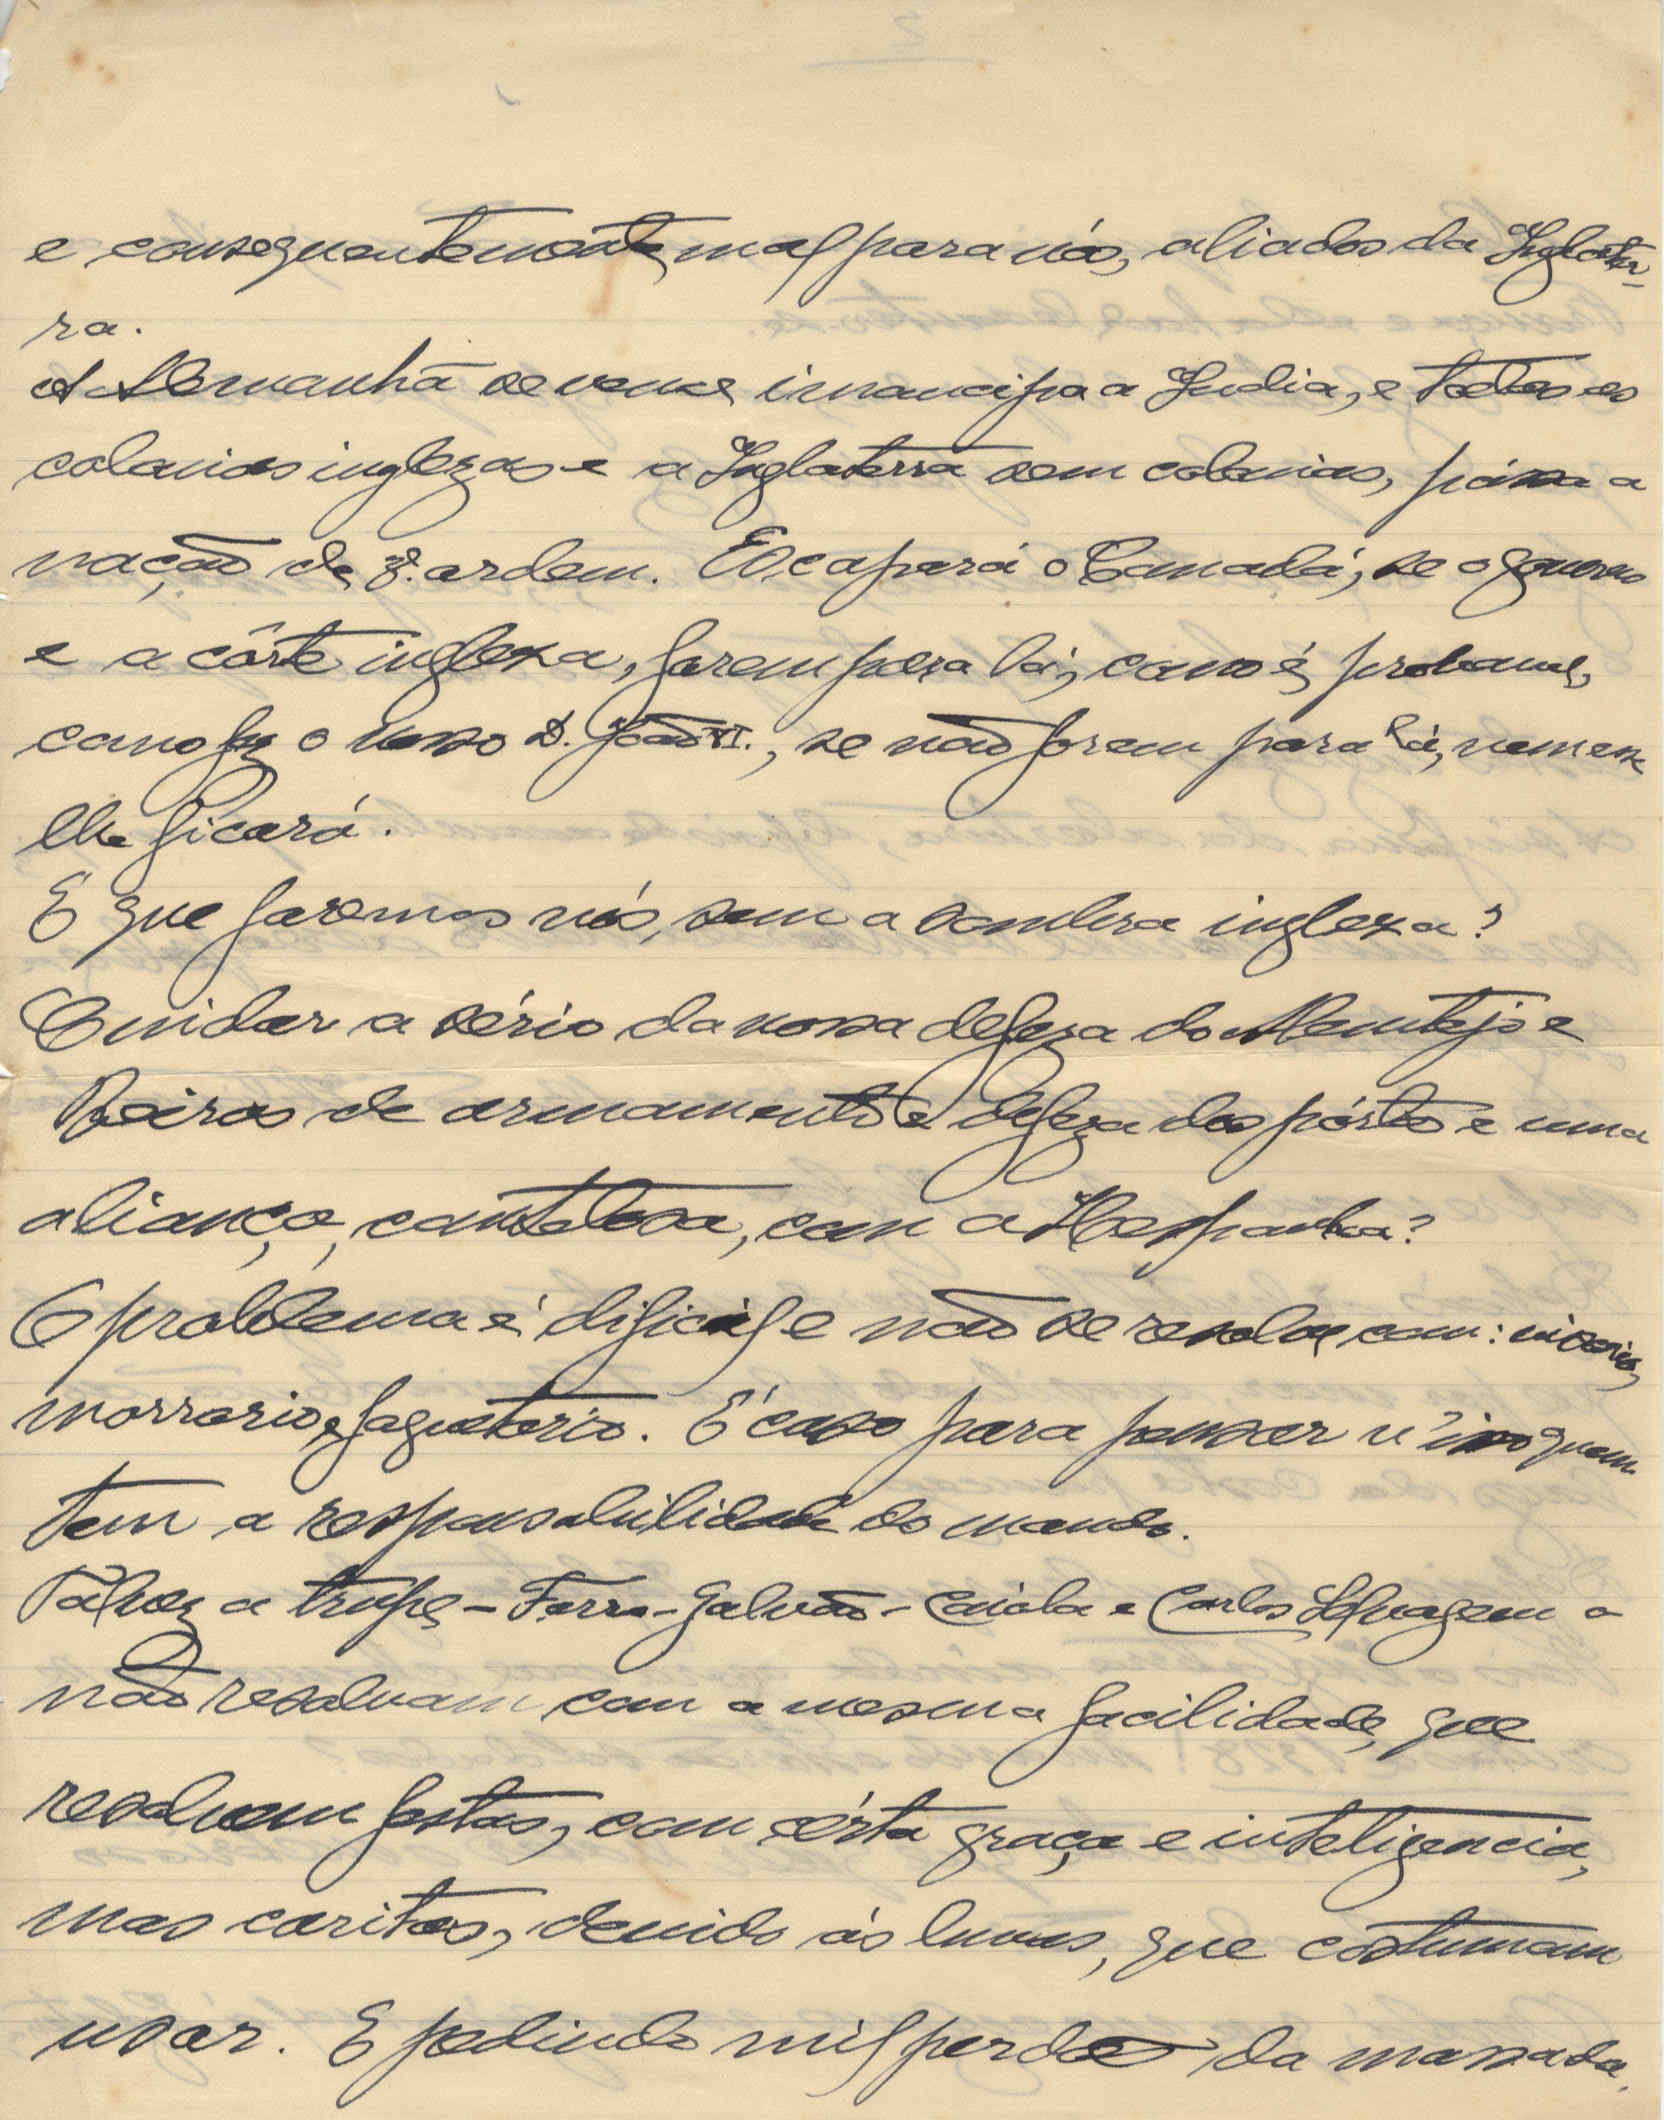 e consequentemente, mal para nós, aliados da Inglater-
ra.
A Alemanhã se vence, imancipa a India, e todas as
colonias inglezas e a Inglaterra sem colonias, pássa a
nação de 3ª. ordem. Escapará o Canadá, se o governo
e a côrte ingleza, forem para lá, como é, provavel,
como fez o nosso D. João VI., se não forem para lá, nem esse
lhe ficará.
E que faremos nós, sem a sombra ingleza?
Cuidar a sério da nossa defeza do Alemtejo e
Beiras de armamento e defeza dos pórtos e uma
aliança, cautelosa, com a Hespanha?
O problema é dificil e não se resolve com:
morrorio, foguetorio. E' caso para pensar n'isso quem
tem a responsabilidade do mando.
Talvez a trupe, - Ferro - Galvão - Caiola e Carlos Selvagem o
não resolvam com a mesma facilidade, que
resolvem festas, com cérta graça e inteligencia,
mas caritas, devido ás luvas, que costumam
usar. E pedindo mil perdões da massada,